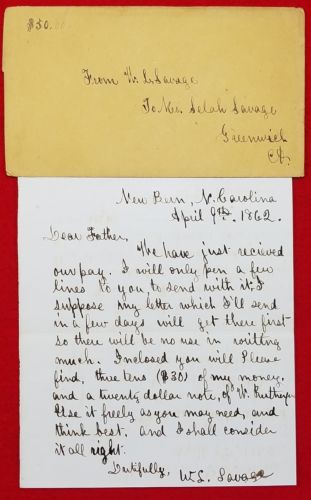 $30.00
From W. L. Savage
To Mr. Selah Savage
Greenwich
Ct.
New Bern, N. Carolina
April 9th. 1862.
Dear Father,
We have just recieved
our pay. I will only pen a few
lines to you to send with it. I
suppose my letter which I'll send
in a few days will get there first
so there will be no use in writting
much. Inclosed you will Please
find, three tens ($30) of my money,
and a twenty dollar note, of W.
Use it freely as you may need, and
think best. and I shall consider
it all right.
Dutifully,
W. L. Savage